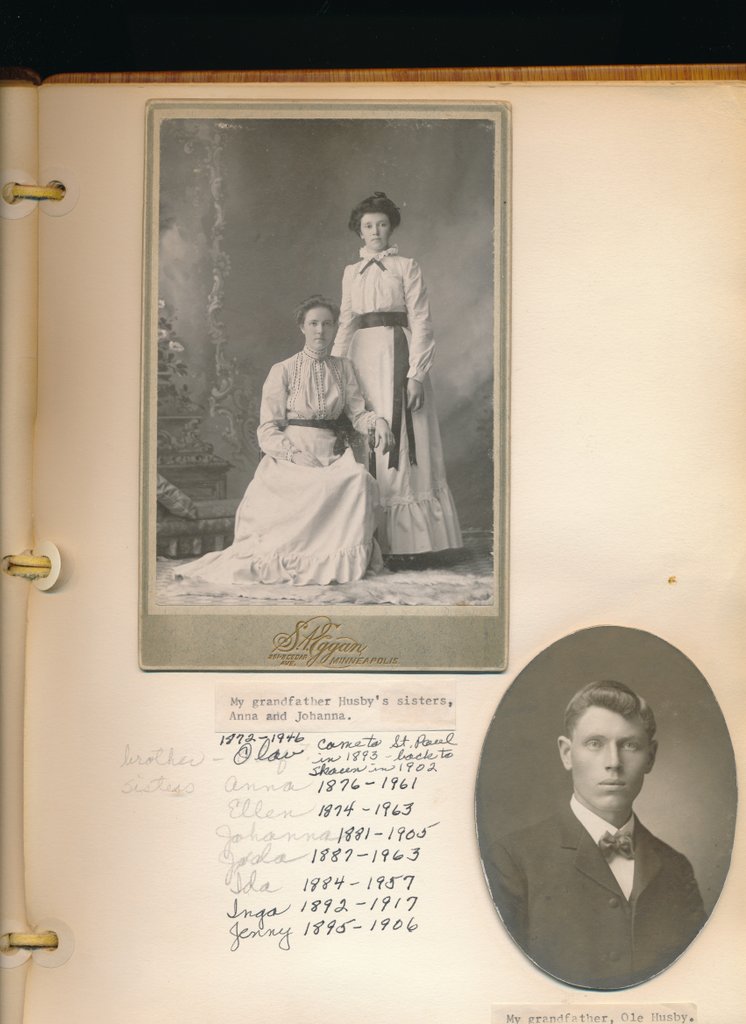 S. P. Eggan
CEDAR
AVE. MINNEAPOLIS
My grandfather Husby's sisters,
Anna and Johanna.
1872-1946
brother - Olav came to St. Paul
in 1893 - back to
Skaun in 1902
sisters Anna 1876-1961
Ellen 1874-1963
Johanna 1881-1905
1887-1963
Ida 1884-1957
Inga 1892-1917
Jenny 1895-1906
My grandfather, Ole Husby.